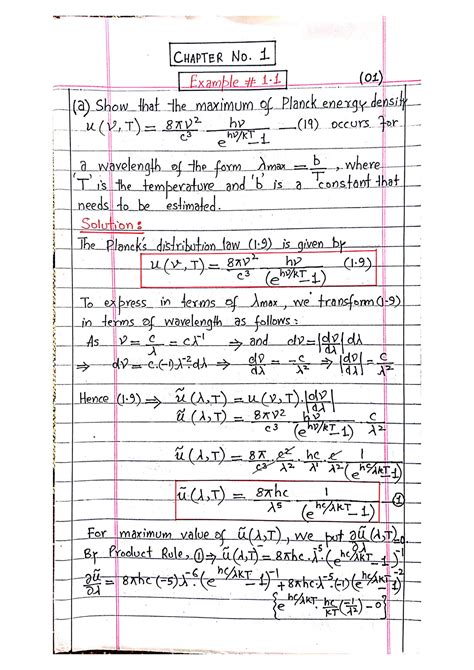 CHAPTER No. 1
Example # 1.1 (01)
(a) Show that the maximum of Planck energy density
u(ν,T) = 8πν²/c³ hν/(e^(hν/kT) - 1) —(19) occurs for
a wavelength of the form λmax = b/T, where
'T' is the temperature and 'b' is a constant that
needs to be estimated.
Solution:
The Planck's distribution law (1.9) is given by
u(ν,T) = 8πν²/c³ hν/(e^(hν/kT) - 1) (1.9)
To express in terms of λmax, we transform (1.9)
in terms of wavelength as follows:
As ν = c/λ = cλ⁻¹ ⇒ and dν = |dν/dλ| dλ
⇒ dν = c.(-1)λ⁻²dλ ⇒ dν/dλ = -c/λ² ⇒ |dν/dλ| = c/λ²
Hence (1.9) ⇒ ũ(λ,T) = u(ν,T).|dν/dλ|
ũ(λ,T) = 8πν²/c³ hν/(e^(hν/kT) - 1) . c/λ²
ũ(λ,T) = 8π/c³ . c²/λ² . hc/λ¹ . c/λ² 1/(e^(hc/λkT) - 1)
ũ(λ,T) = 8πhc/λ⁵ 1/(e^(hc/λkT) - 1) —①
For maximum value of ũ(λ,T), we put ∂ũ(λ,T)/∂λ = 0
By Product Rule, ① ⇒ ũ(λ,T) = 8πhc.λ⁻⁵(e^(hc/λkT) - 1)⁻¹
∂ũ/∂λ = 8πhc(-5)λ⁻⁶.(e^(hc/λkT) - 1)⁻¹ + 8πhcλ⁻⁵.(-1)(e^(hc/λkT) - 1)⁻²
{e^(hc/λkT) . hc/kT (-1/λ²) - 0}